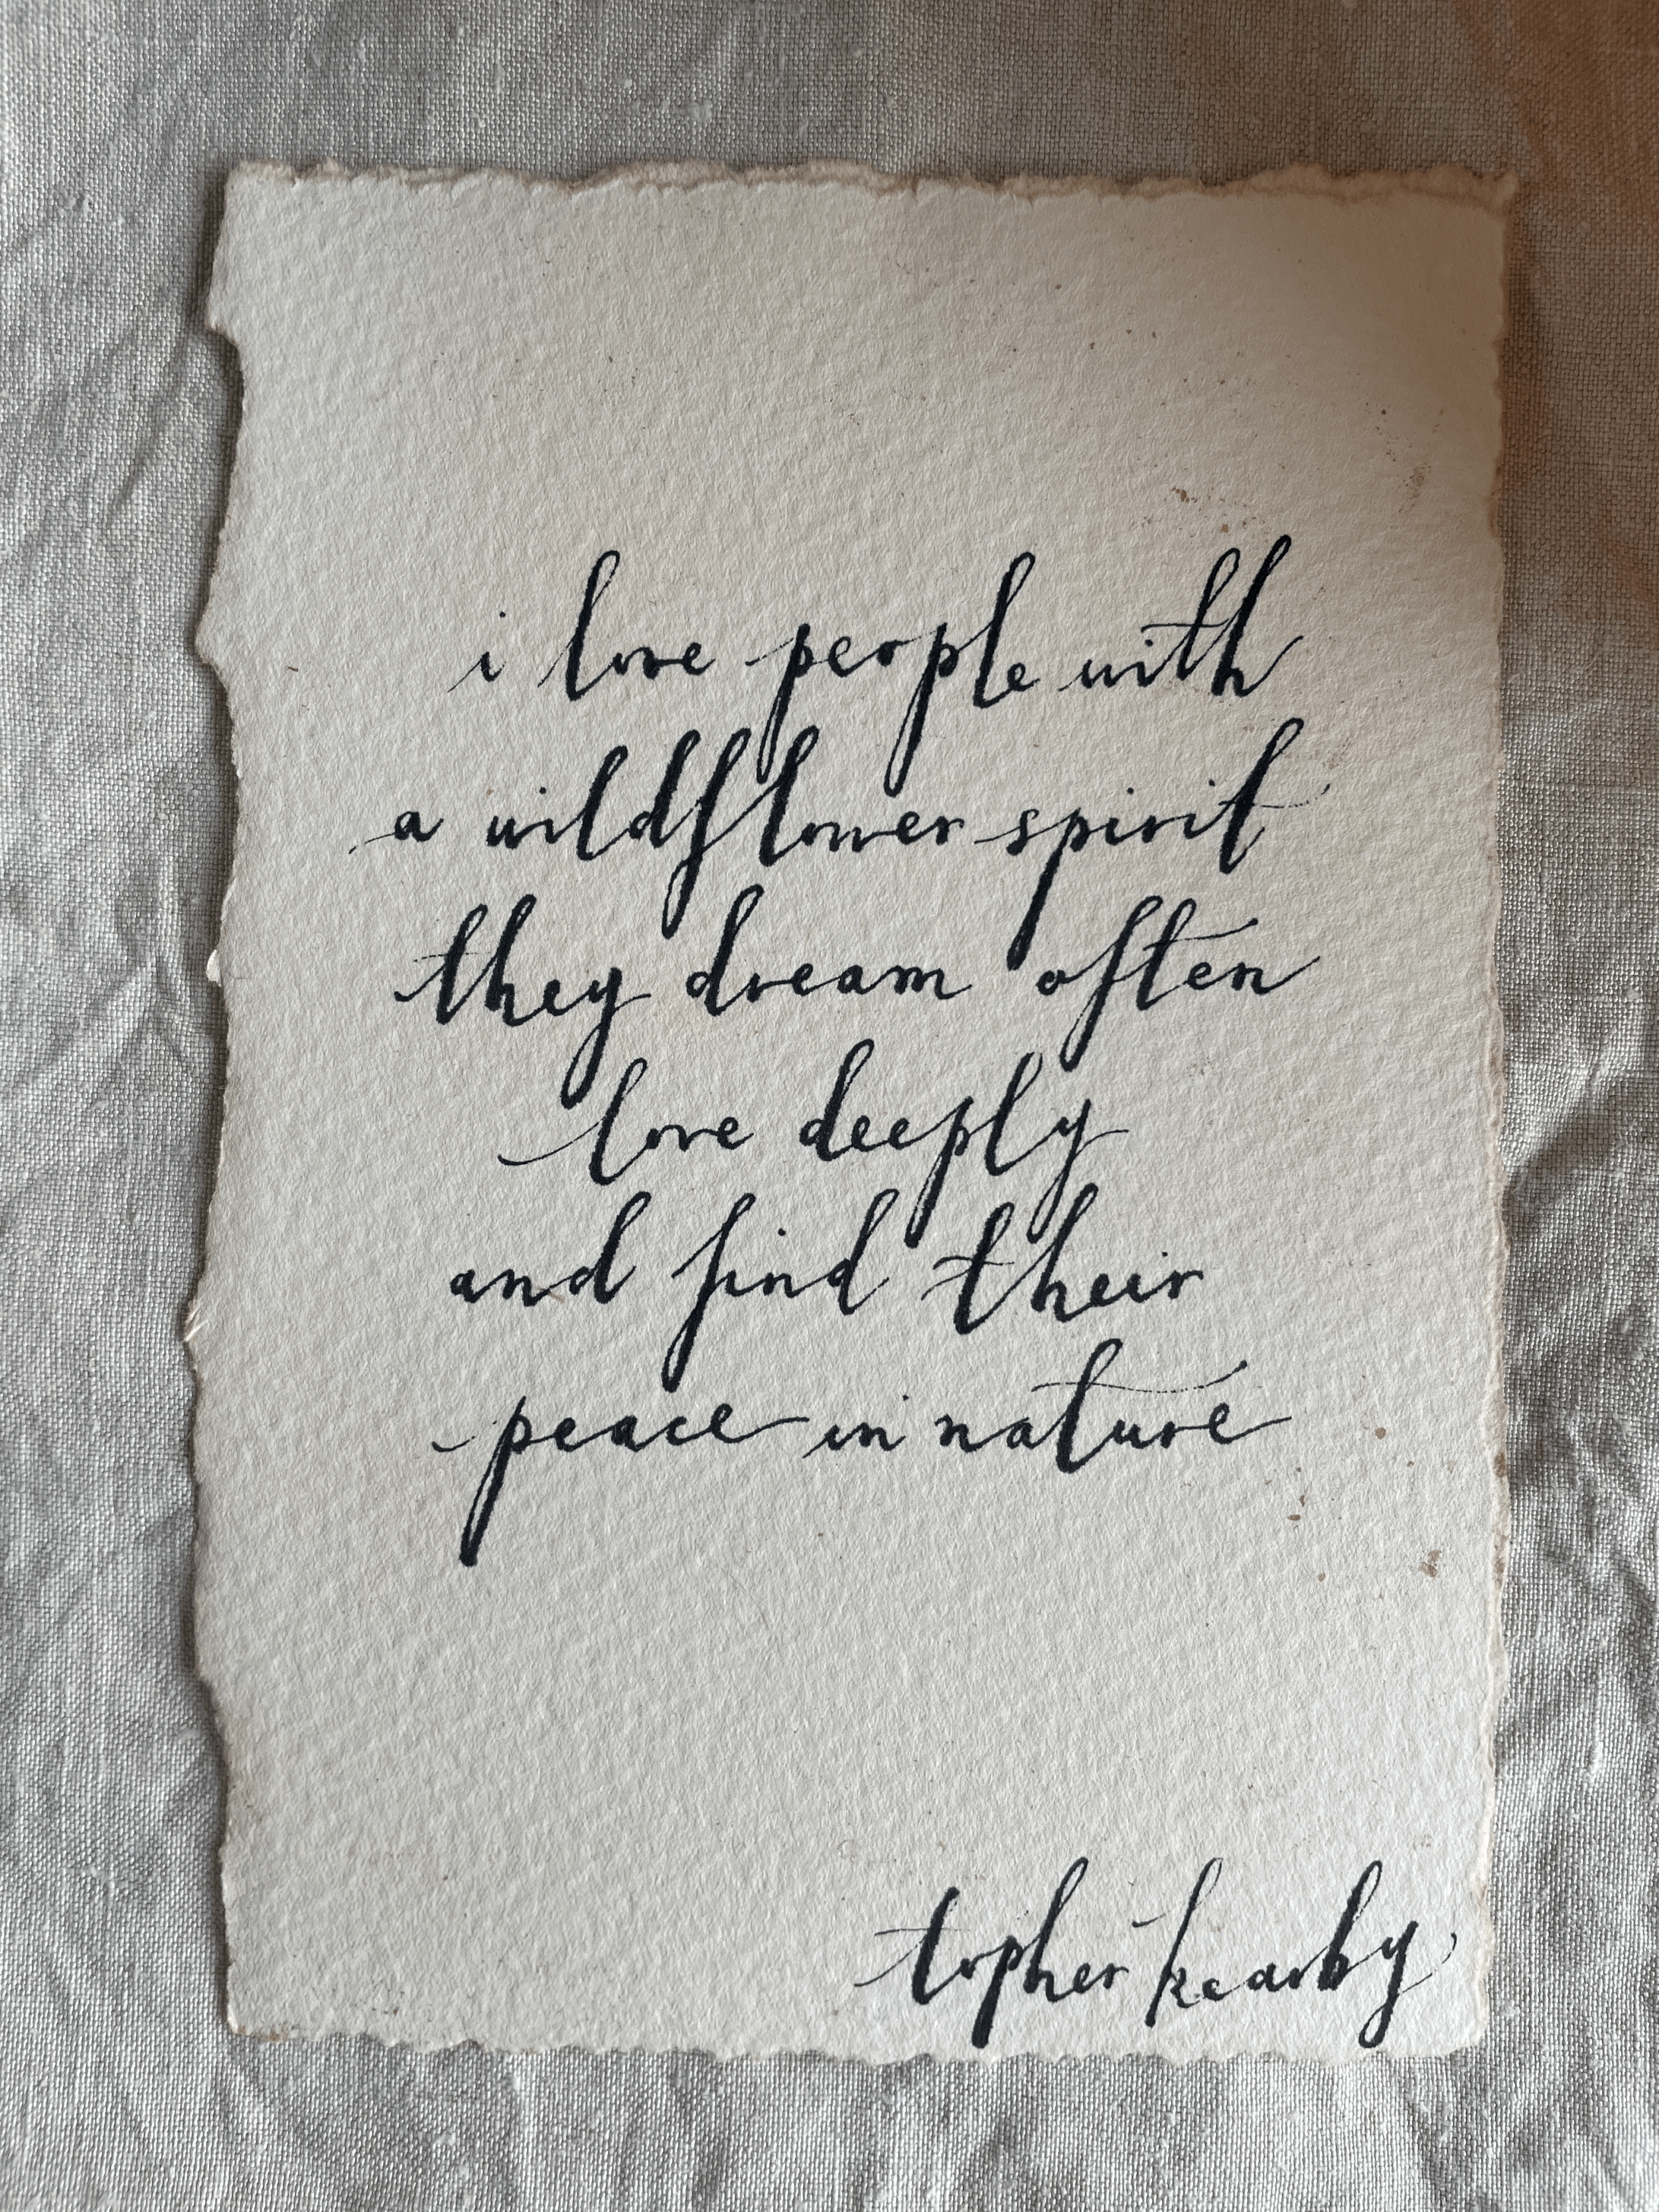 i love people with
a wildflower spirit
they dream often
love deeply
and find their
peace in nature
topher kearby